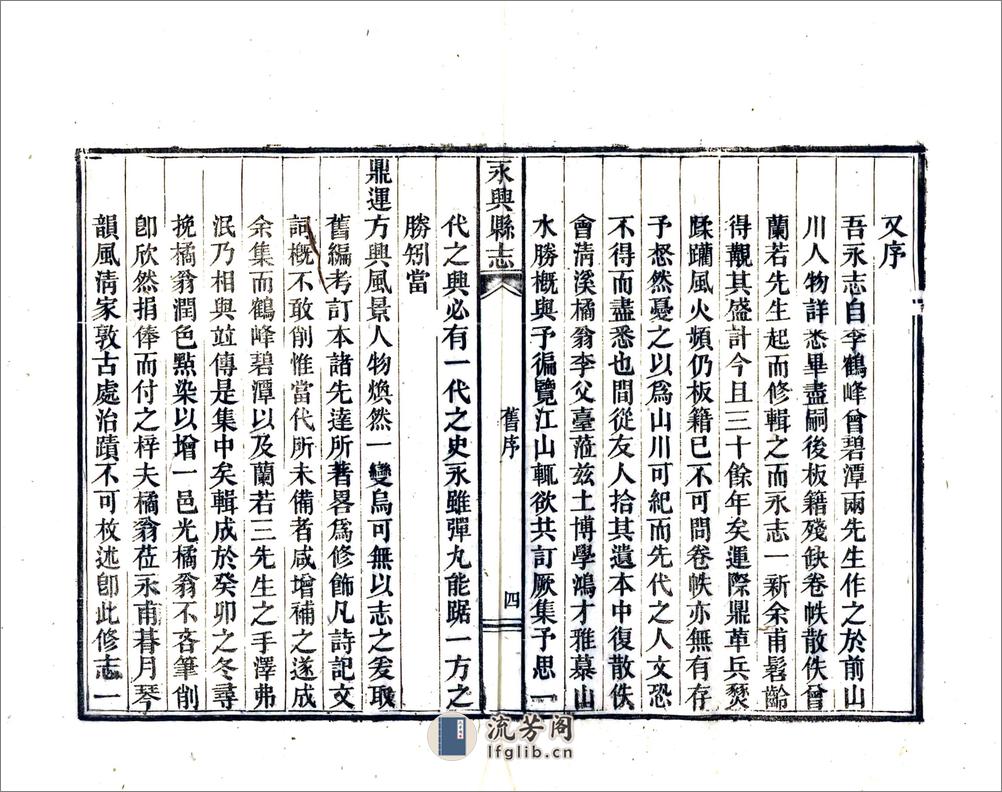 又序
吾永志自李鶴峰曾碧潭兩先生作之於前山
川人物詳悉畢盡嗣後板籍殘缺卷帙散佚曾
蘭若先生起而修輯之而永志一新余甫髫齡
得觀其盛計今且三十餘年矣運際鼎革兵燹
蹂躪風火頻仍板籍已不可問卷帙亦無有存
予惄然憂之以為山川可紀而先代之人文恐
不得而盡悉也間從友人拾其遺本中復散佚
會清溪橘翁李父臺蒞茲土博學鴻才雅慕山
水勝概與予徧覽江山輒欲共訂厥集予思一
永興縣志
舊序
四
代之興必有一代之史永雖彈丸能踞一方之
勝矧當
鼎運方興風景人物煥然一變烏可無以志之爰取
舊編考訂本諸先達所著畧為修飾凡詩記文
詞概不敢削惟當代所未備者咸增補之遂成
余集而鶴峰碧潭以及蘭若三先生之手澤弗
泯乃相與並傳是集中矣輯成於癸卯之冬尋
挽橘翁潤色點染以增一邑光橘翁不吝筆削
卽欣然捐俸而付之梓夫橘翁莅永甫朞月琴
韻風清家敦古處治蹟不可枚述卽此修志一
流芳阁
lfglib.cn